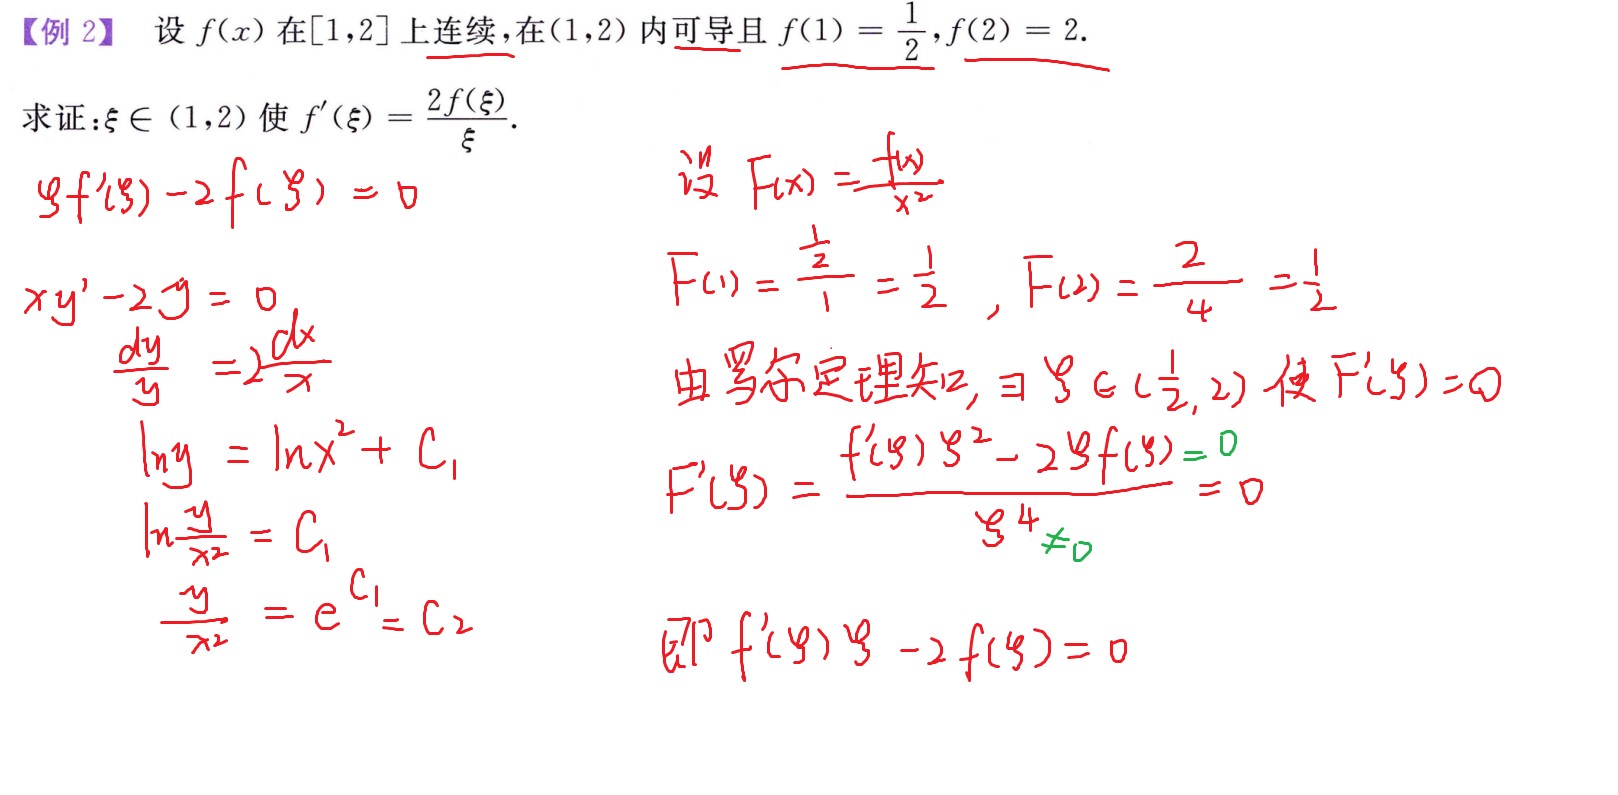 【例 2】 设 f(x) 在[1,2] 上连续,在(1,2) 内可导且 f(1) = 1/2, f(2) = 2.
求证:ξ ∈ (1,2) 使 f′(ξ) = 2f(ξ)/ξ.
ξf′(ξ) - 2f(ξ) = 0
xy′ - 2y = 0
dy/y = 2 dx/x
lny = lnx² + C₁
ln y/x² = C₁
y/x² = e^C₁ = C₂
设 F(x) = f(x)/x²
F(1) = (1/2)/1 = 1/2 , F(2) = 2/4 = 1/2
由罗尔定理知, ∃ ξ ∈ (1/2, 2) 使 F′(ξ) = 0
F′(ξ) = (f′(ξ)ξ² - 2ξf(ξ) = 0)/(ξ⁴ ≠ 0) = 0
即 f′(ξ)ξ - 2f(ξ) = 0